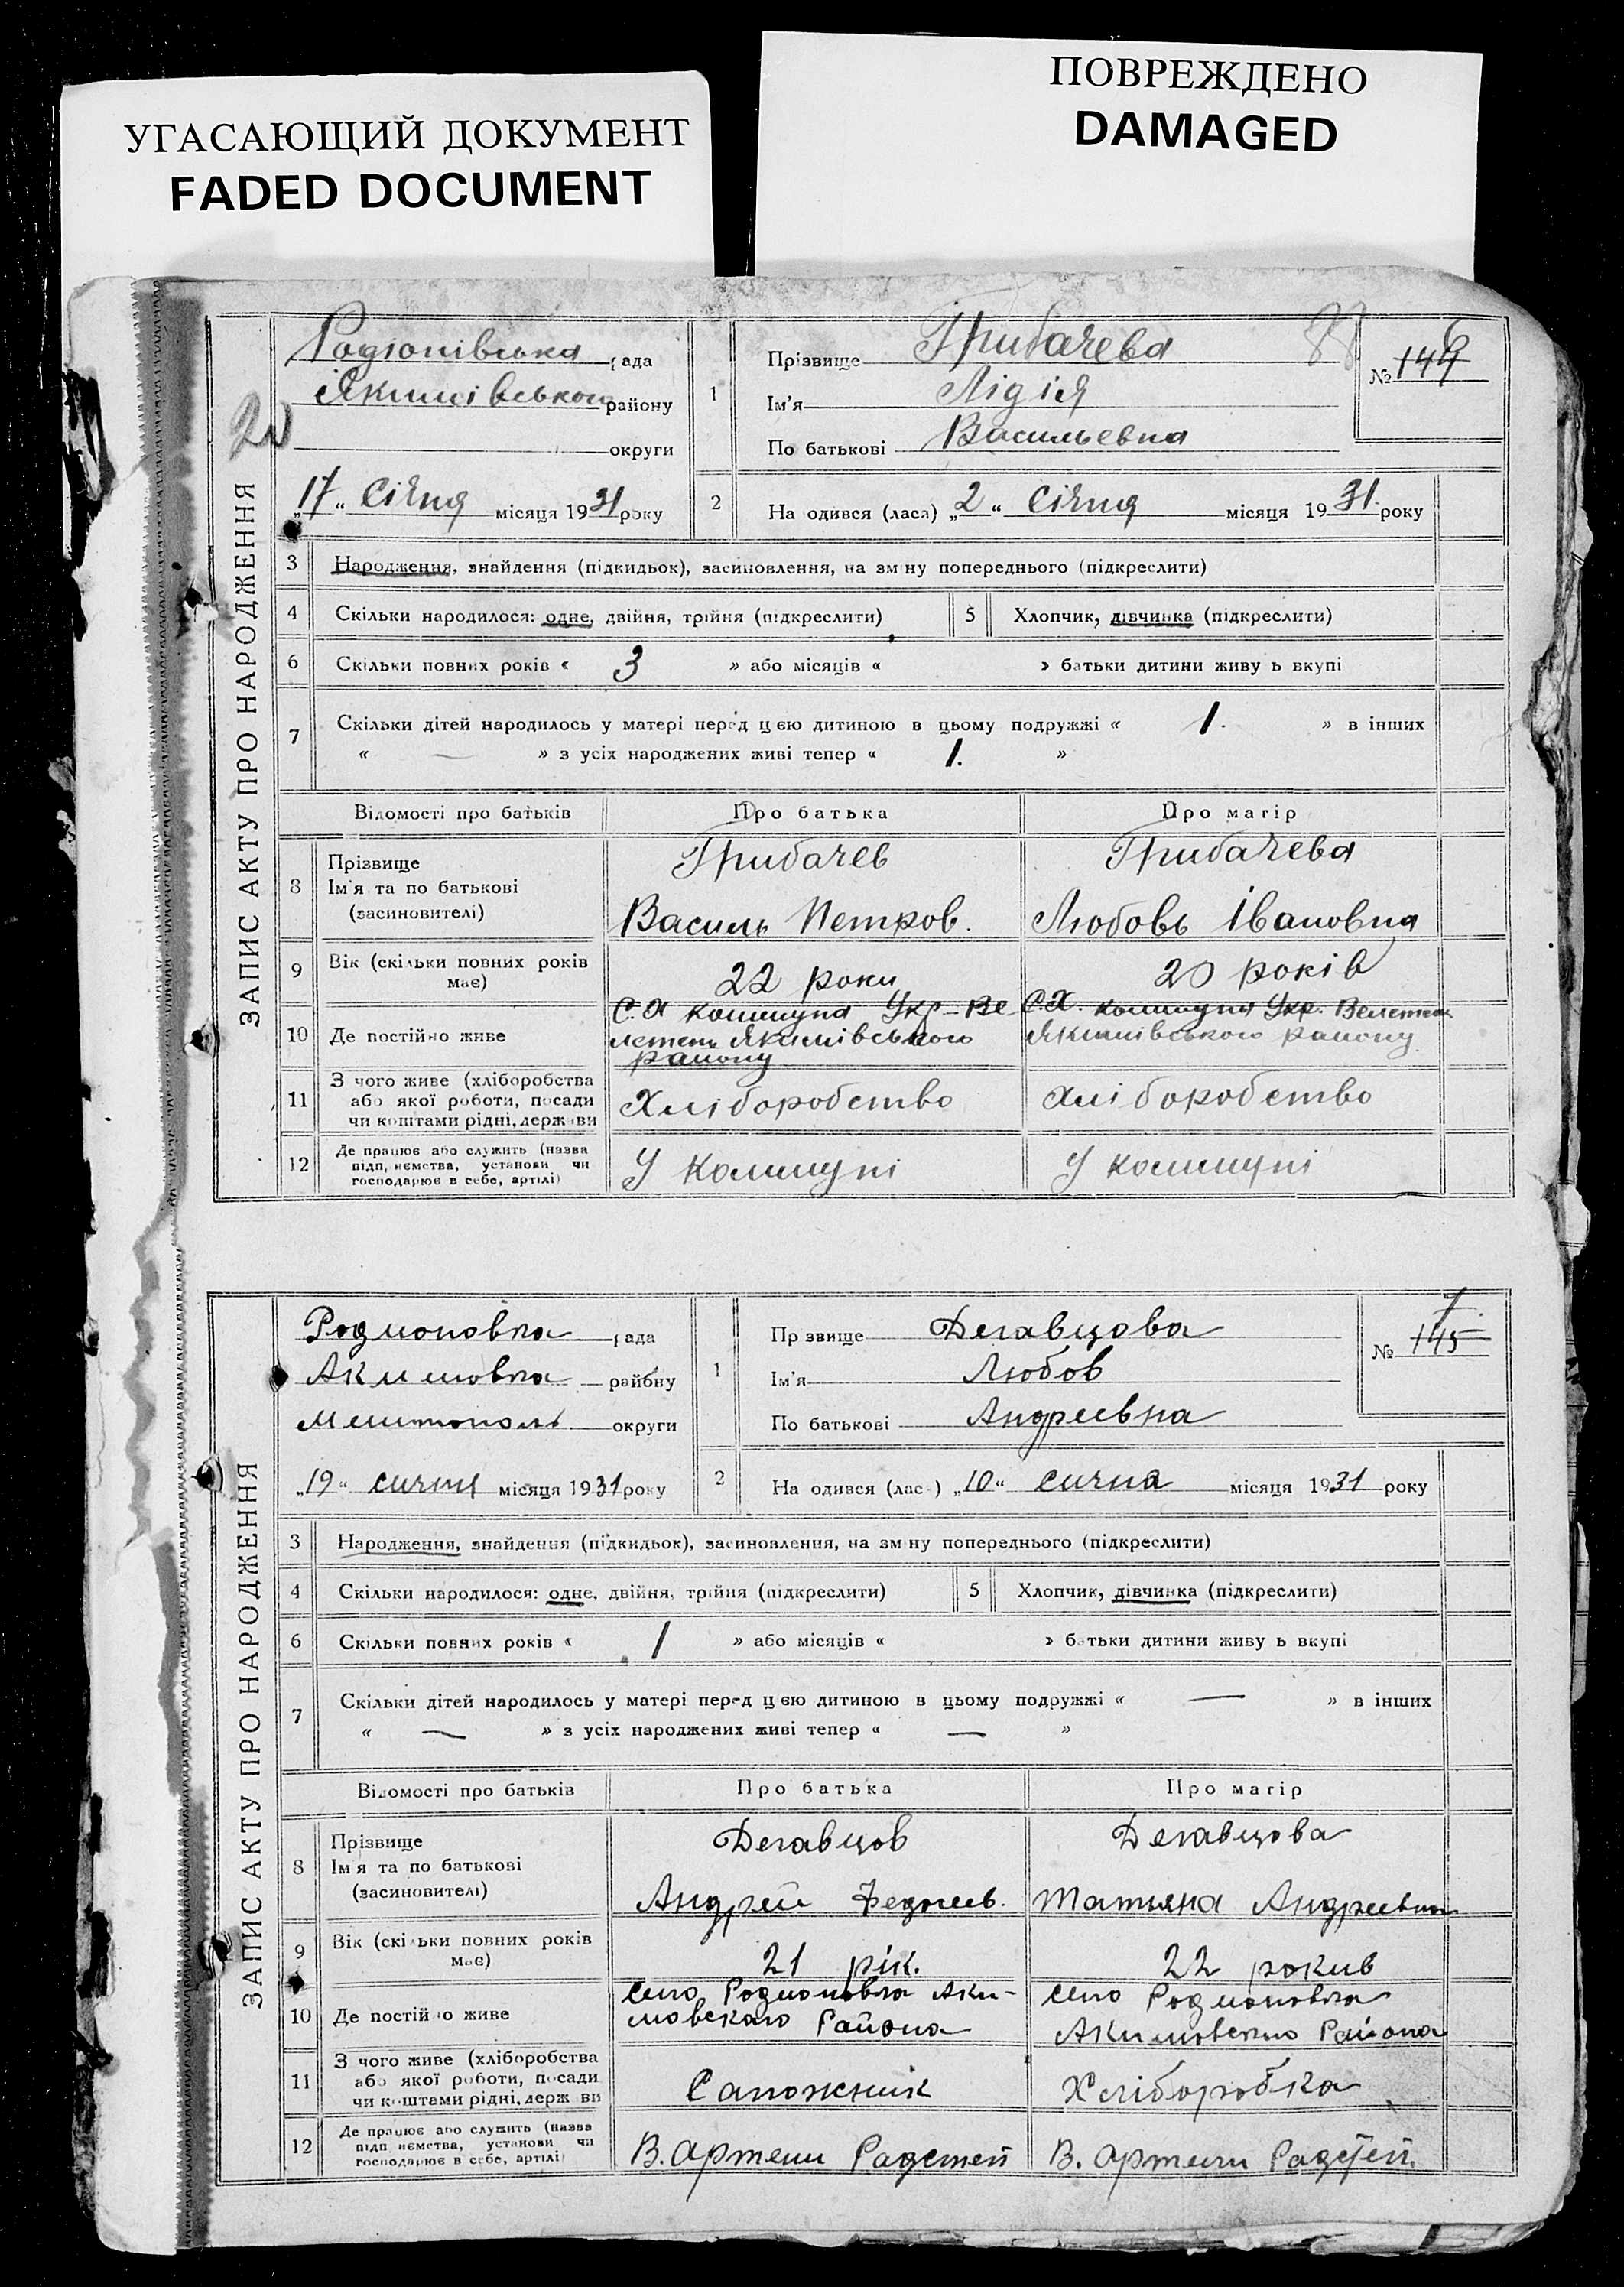 УГАСАЮЩИЙ ДОКУМЕНТ
FADED DOCUMENT
ПОВРЕЖДЕНО
DAMAGED
ЗАПИС АКТУ ПРО НАРОДЖЕННЯ
20
Родіонівська рада
Якимівського району
округи
„17“ Січня місяця 1931 року
1
Прізвище Грибачева
Ім'я Лідія
По батькові Васильевна
88
№ 144 6
2
На одився (лася) „2“ Січня місяця 1931. року
3 Народження, знайдення (підкидьок), засиновлення, на зм ну попереднього (підкреслити)
4 Скільки народилося: одне, двійня, трійня (підкреслити) 5 Хлопчик, дівчинка (підкреслити)
6 Скільки повних років « 3 » або місяців « » батьки дитини живу ь вкупі
7 Скільки дітей народилось у матері перед цею дитиною в цьому подружжі « 1. » в інших
« — » з усіх народжених живі тепер « 1. »
Відомості про батьків Про батька Про матір
8 Прізвище
Ім'я та по батькові
(засиновителі)
Грибачев
Василь Петров.
Грибачева
Любовь Івановна
9 Вік (скільки повних років має) 22 роки 20 років
10 Де постійно живе
С.Х коммуна Укр-Ве-
летень Якимівського
району
С.Х. коммуна Укр. Велетень
Якимівського району
11 З чого живе (хліборобства
або якої роботи, посади
чи коштами рідні, держави
Хліборобство Хліборобство
12 Де працює або служить (назва
підприємства, установи чи
господарює в себе, артілі)
У коммуні У коммуні
ЗАПИС АКТУ ПРО НАРОДЖЕННЯ
Родионовка рада
Акимовка району
Мелитополь округи
„19“ сичня місяця 1931 року
1
Пр звище Дегавцова
Ім'я Любов
По батькові Андреевна
№ 145 7
2
На одився (лас ) „10“ сична місяця 1931 року
3 Народження, знайдення (підкидьок), засиновлення, на зм ну попереднього (підкреслити)
4 Скільки народилося: одне, двійня, трійня (підкреслити) 5 Хлопчик, дівчинка (підкреслити)
6 Скільки повних років « 1 » або місяців « » батьки дитини живу ь вкупі
7 Скільки дітей народилось у матері перед цею дитиною в цьому подружжі « — » в інших
« — » з усіх народжених живі тепер « — »
Відомості про батьків Про батька Про матір
8 Прізвище
Ім'я та по батькові
(засиновителі)
Дегавцов
Андрей Федосев.
Дегавцова
Татьяна Андреевна
9 Вік (скільки повних років має) 21 рік. 22 рокив
10 Де постійно живе
село Родионовка Аки-
мовского Района
село Родионовка
Акимовского Района
11 З чого живе (хліборобства
або якої роботи, посади
чи коштами рідні, держ ви
Сапожник Хліборобка
12 Де працює або служить (назва
підприємства, установи чи
господарює в себе, артілі)
В. Артели Радстеп В. Артели Радстеп